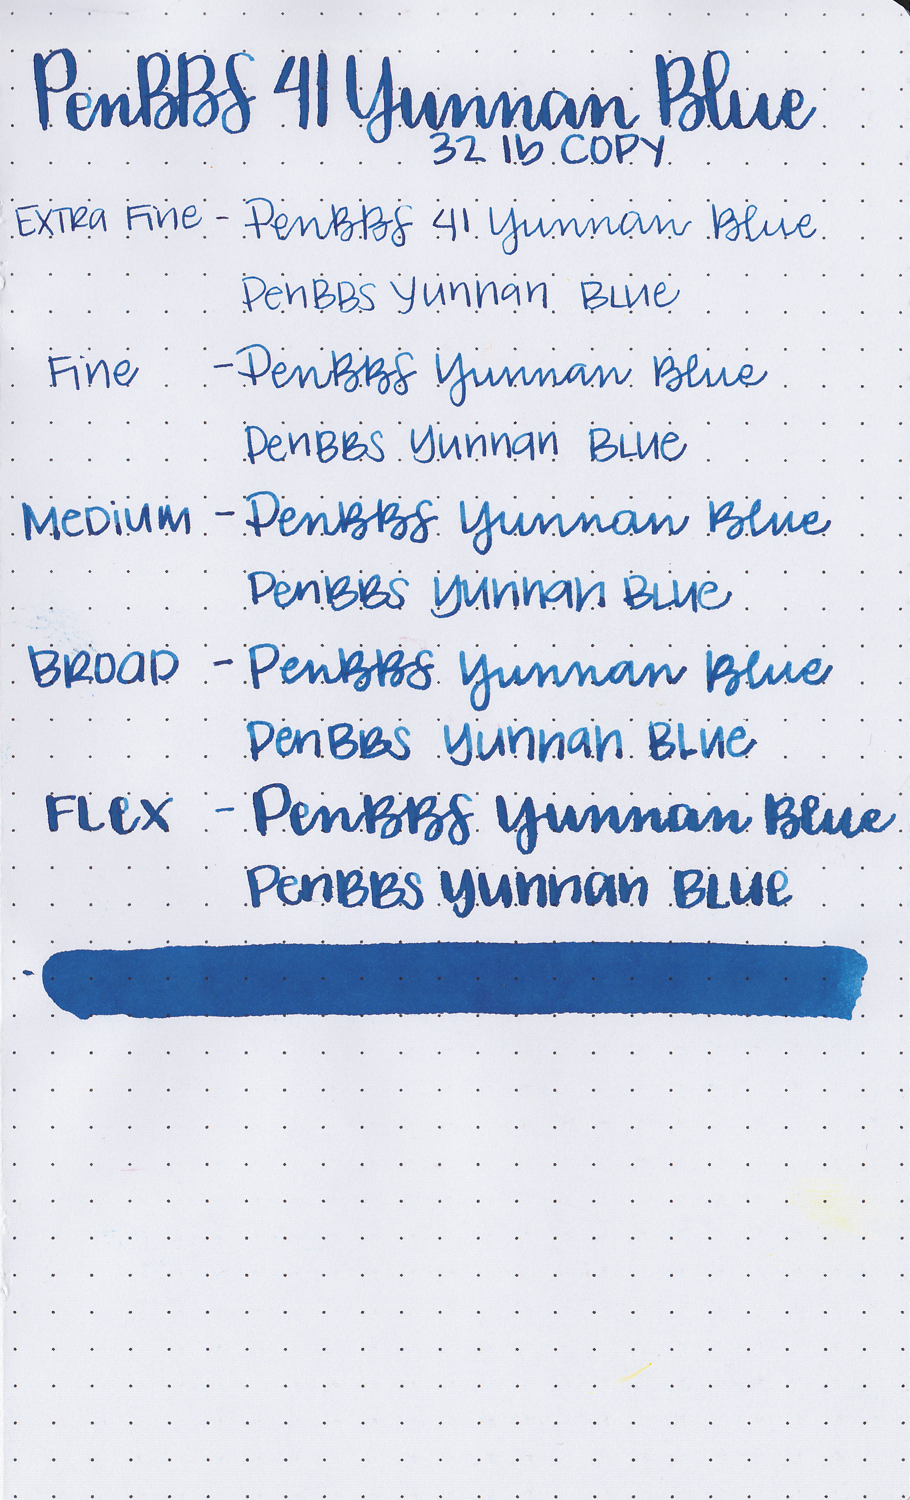 PenBBS 41 Yunnan Blue
32 lb COPY
EXTRA Fine - PenBBS 41 Yunnan Blue
PenBBS Yunnan BLUe
Fine - PenBBS Yunnan Blue
PenBBS Yunnan BLUe
MeDiUM - PenBBS Yunnan Blue
PenBBS Yunnan BLUe
BROAD - PenBBS Yunnan Blue
PenBBS Yunnan BLUe
FLex - PenBBS Yunnan Blue
PenBBS Yunnan BLUe